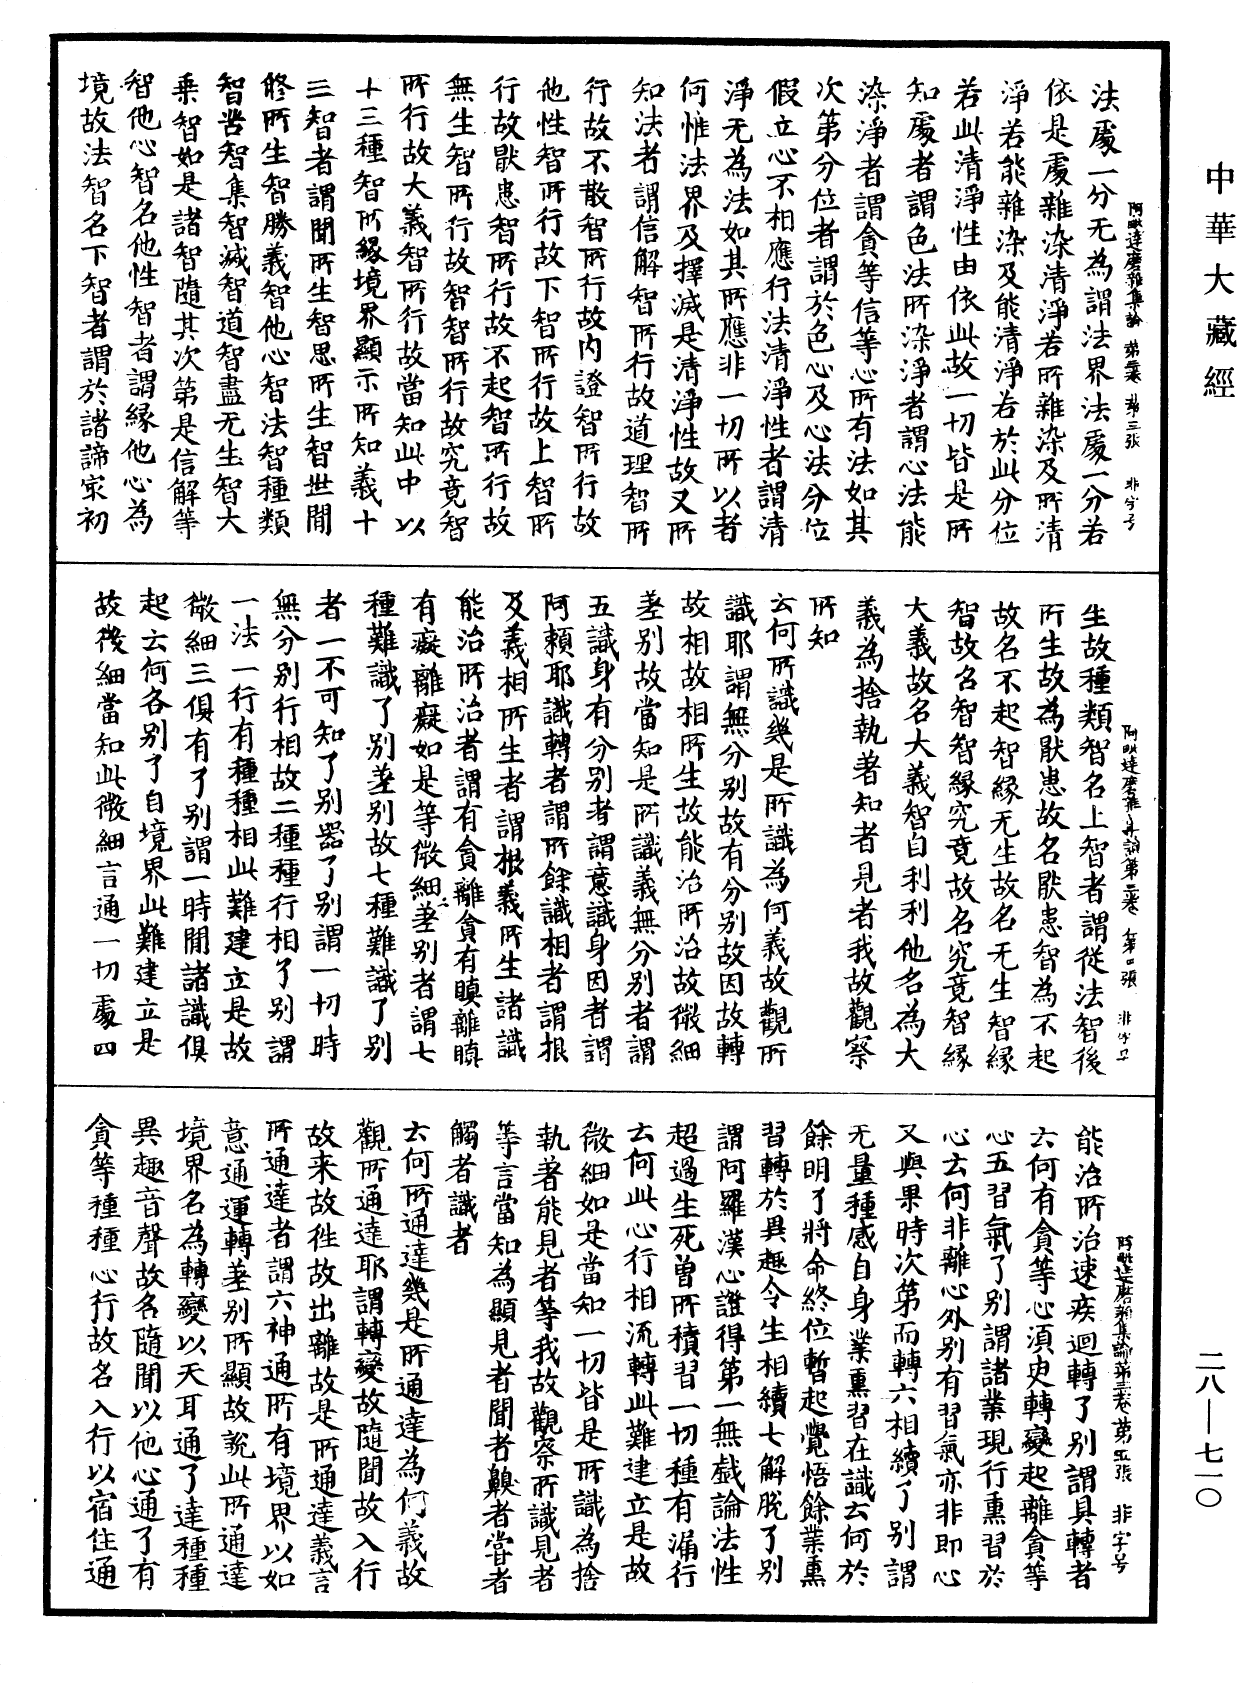 中華大藏經
阿毗達磨雜集論 第三卷 第三張 非字号
法處一分无為謂法界法處一分若
依是處雜染清淨若所雜染及所清
淨若能雜染及能清淨若於此分位
若此清淨性由依此故一切皆是所
知處者謂色法所染淨者謂心法能
染淨者謂貪等信等心所有法如其
次第分位者謂於色心及心法分位
假立心不相應行法清淨性者謂清
淨无為法如其所應非一切所以者
何惟法界及擇滅是清淨性故又所
知法者謂信解智所行故道理智所
行故不散智所行故內證智所行故
他性智所行故下智所行故上智所
行故猒患智所行故不起智所行故
無生智所行故智智所行故究竟智
所行故大義智所行故當知此中以
十三種智所緣境界顯示所知義十
三智者謂聞所生智思所生智世間
修所生智勝義智他心智法智種類
智苦智集智滅智道智盡无生智大
乘智如是諸智隨其次第是信解等
智他心智名他性智者謂緣他心為
境故法智名下智者謂於諸諦㝡初
阿毗達磨雜集論第三卷 第四張 非字号
生故種類智名上智者謂從法智後
所生故為猒患故名猒患智為不起
故名不起智緣无生故名无生智緣
智故名智智緣究竟故名究竟智緣
大義故名大義智自利利他名為大
義為捨執著知者見者我故觀察
所知
云何所識幾是所識為何義故觀所
識耶謂無分別故有分別故因故轉
故相故相所生故能治所治故微細
差別故當知是所識義無分別者謂
五識身有分別者謂意識身因者謂
阿賴耶識轉者謂所餘識相者謂根
及義相所生者謂根義所生諸識
能治所治者謂有貪離貪有瞋離瞋
有癡離癡如是等微細差別者謂七
種難識了別差別故七種難識了別
者一不可知了別器了別謂一切時
無分別行相故二種種行相了別謂
一法一行有種種相此難建立是故
微細三俱有了別謂一時間諸識俱
起云何各別了自境界此難建立是
故微細當知此微細言通一切處四
阿毗達磨雜集論第三卷 第五張 非字号
能治所治速疾迴轉了別謂具轉者
云何有貪等心須史轉變起離貪等
心五習氣了別謂諸業現行熏習於
心云何非離心外別有習氣亦非即心
又與果時次第而轉六相續了別謂
无量種感自身業熏習在識云何於
餘明了將命終位暫起覺悟餘業熏
習轉於異趣令生相續七解脫了別
謂阿羅漢心證得第一無戲論法性
超過生死曾所積習一切種有漏行
云何此心行相流轉此難建立是故
微細如是當知一切皆是所識為捨
執著能見者等我故觀察所識見者
等言當知為顯見者聞者齅者甞者
觸者識者
云何所通達幾是所通達為何義故
觀所通達耶謂轉變故隨聞故入行
故来故徃故出離故是所通達義言
所通達者謂六神通所有境界以如
意通運轉差別所顯故說此所通達
境界名為轉變以天耳通了達種種
異趣音聲故名隨聞以他心通了有
貪等種種心行故名入行以宿住通
二八—七一〇